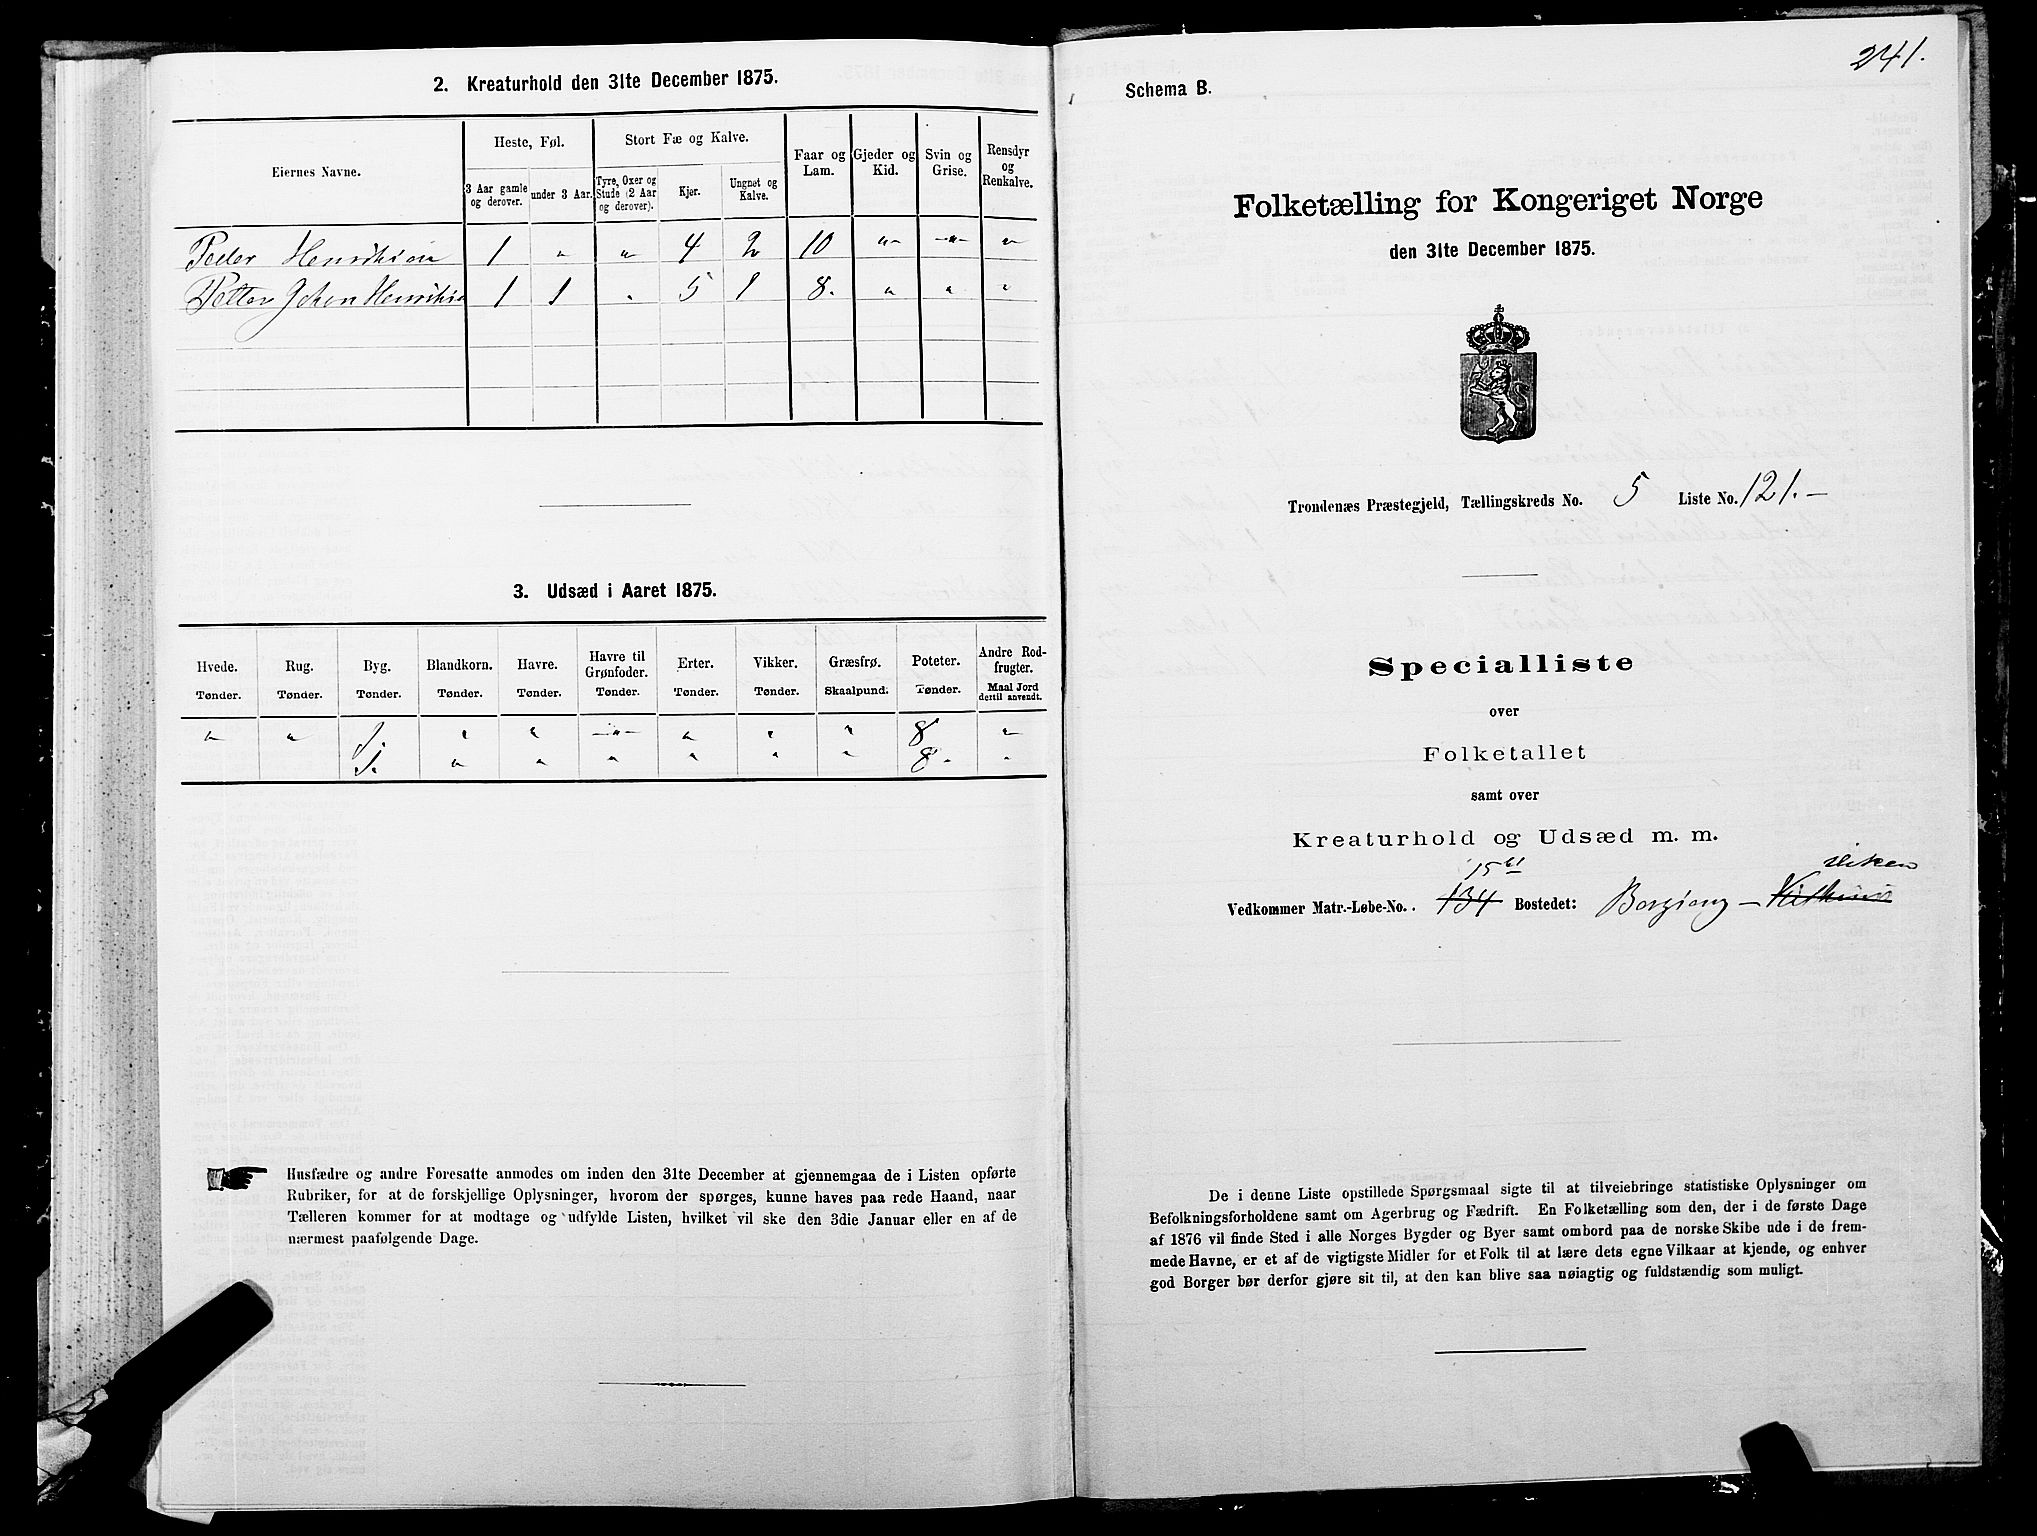 2. Kreaturhold den 31te December 1875.
Eiernes Navne.
Heste, Føl.
3 Aar gamle og derover.
under 3 Aar.
Stort Fæ og Kalve.
Tyre, Oxer og Stude (2 Aar og derover).
Kjør.
Ungnøt og Kalve.
Faar og Lam.
Gjeder og Kid.
Svin og Grise.
Rensdyr og Renkalve.
Peder Henriksen 1 " " 4 2 10 " " "
Petter Johan Henriks 1 1 " 5 1 8. " " "
3. Udsæd i Aaret 1875.
Hvede. Rug. Byg. Blandkorn. Havre. Havre til Grønfoder. Erter. Vikker. Græsfrø. Poteter. Andre Rodfrugter.
Tønder. Tønder. Tønder. Tønder. Tønder. Tønder. Tønder. Tønder. Skaalpund. Tønder. Maal Jord dertil anvendt.
" " 1. " " " " " " 8 "
1. " " " " " " 8. "
Husfædre og andre Foresatte anmodes om inden den 31te December at gjennemgaa de i Listen opførte
Rubriker, for at de forskjellige Oplysninger, hvorom der spørges, kunne haves paa rede Haand, naar
Tælleren kommer for at modtage og udfylde Listen, hvilket vil ske den 3die Januar eller en af de
nærmest paafølgende Dage.
241.
Schema B.
Folketælling for Kongeriget Norge
den 31te December 1875.
Trondenæs Præstegjeld, Tællingskreds No. 5 Liste No. 121.
Specialliste
over
Folketallet
samt over
Kreaturhold og Udsæd m. m.
15
Vedkommer Matr.-Løbe-No. 134 Bostedet:
De i denne Liste opstillede Spørgsmaal sigte til at tilveiebringe statistiske Oplysninger om
Befolkningsforholdene samt om Agerbrug og Fædrift. En Folketælling som den, der i de første Dage
af 1876 vil finde Sted i alle Norges Bygder og Byer samt ombord paa de norske Skibe ude i de frem-
mede Havne, er et af de vigtigste Midler for et Folk til at lære dets egne Vilkaar at kjende, og enhver
god Borger bør derfor gjøre sit til, at den kan blive saa nøiagtig og fuldstændig som muligt.